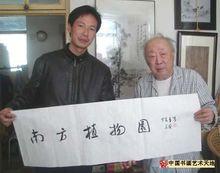 南方植物园
中国书画艺术天地